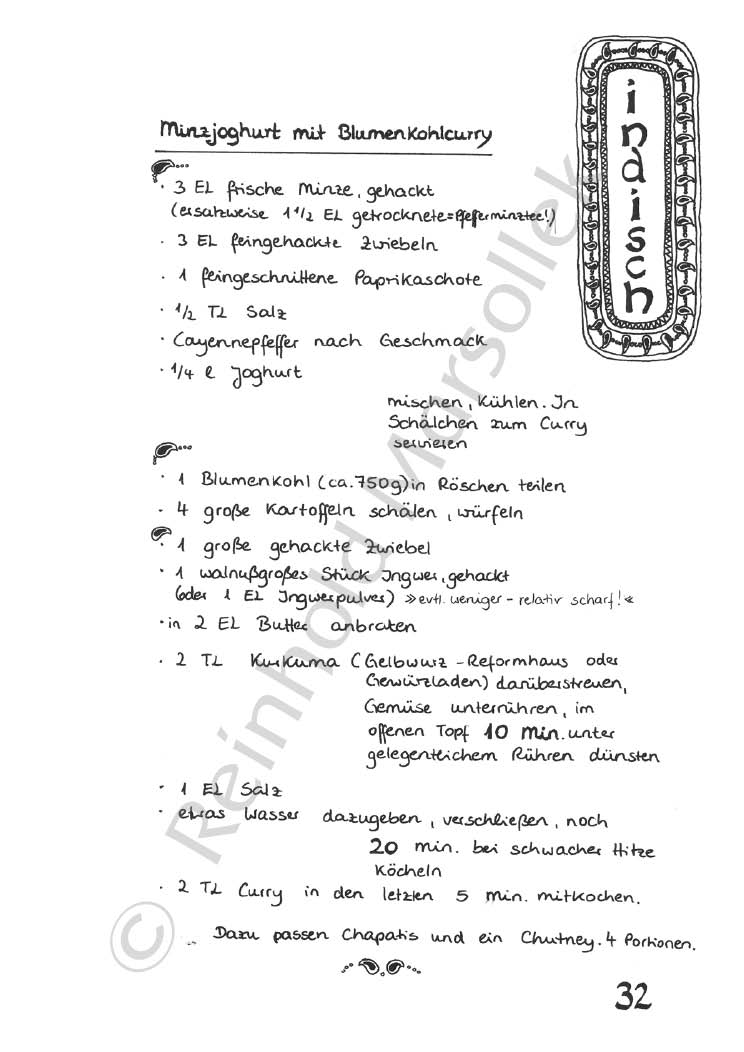 indisch
Minzjoghurt mit Blumenkohlcurry
· 3 EL frische Minze, gehackt
(ersatzweise 1 1/2 EL getrocknete=Pfefferminztee!)
· 3 EL feingehackte Zwiebeln
· 1 feingeschnittene Paprikaschote
· 1/2 TL Salz
· Cayennepfeffer nach Geschmack
· 1/4 l Joghurt
mischen, kühlen. In
Schälchen zum Curry
servieren
· 1 Blumenkohl (ca. 750g) in Röschen teilen
· 4 große Kartoffeln schälen, würfeln
· 1 große gehackte Zwiebel
· 1 walnußgroßes Stück Ingwer, gehackt
(oder 1 EL Ingwerpulver) »evtl. weniger - relativ scharf!«
· in 2 EL Butter anbraten
· 2 TL Kurkuma (Gelbwurz - Reformhaus oder
Gewürzladen) darüberstreuen,
Gemüse unterrühren, im
offenen Topf 10 min. unter
gelegentlichem Rühren dünsten
· 1 EL Salz
· etwas Wasser dazugeben, verschließen, noch
20 min. bei schwacher Hitze
köcheln
· 2 TL Curry in den letzten 5 min. mitkochen.
Dazu passen Chapatis und ein Chutney. 4 Portionen.
32
© Reinhold Marsollek